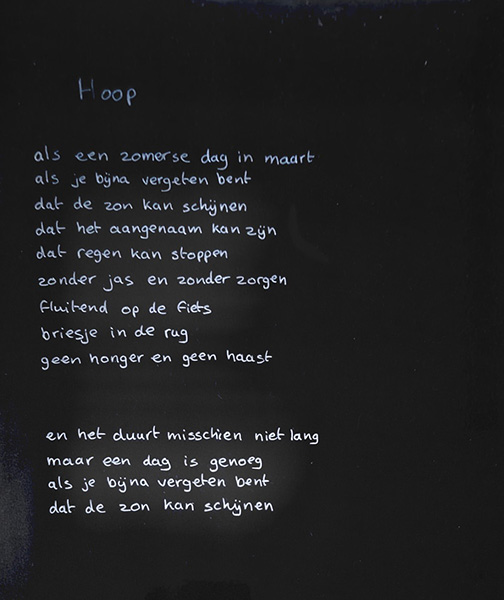 Hoop
als een zomerse dag in maart
als je bijna vergeten bent
dat de zon kan schijnen
dat het aangenaam kan zijn
dat regen kan stoppen
zonder jas en zonder zorgen
fluitend op de fiets
briesje in de rug
geen honger en geen haast
en het duurt misschien niet lang
maar een dag is genoeg
als je bijna vergeten bent
dat de zon kan schijnen